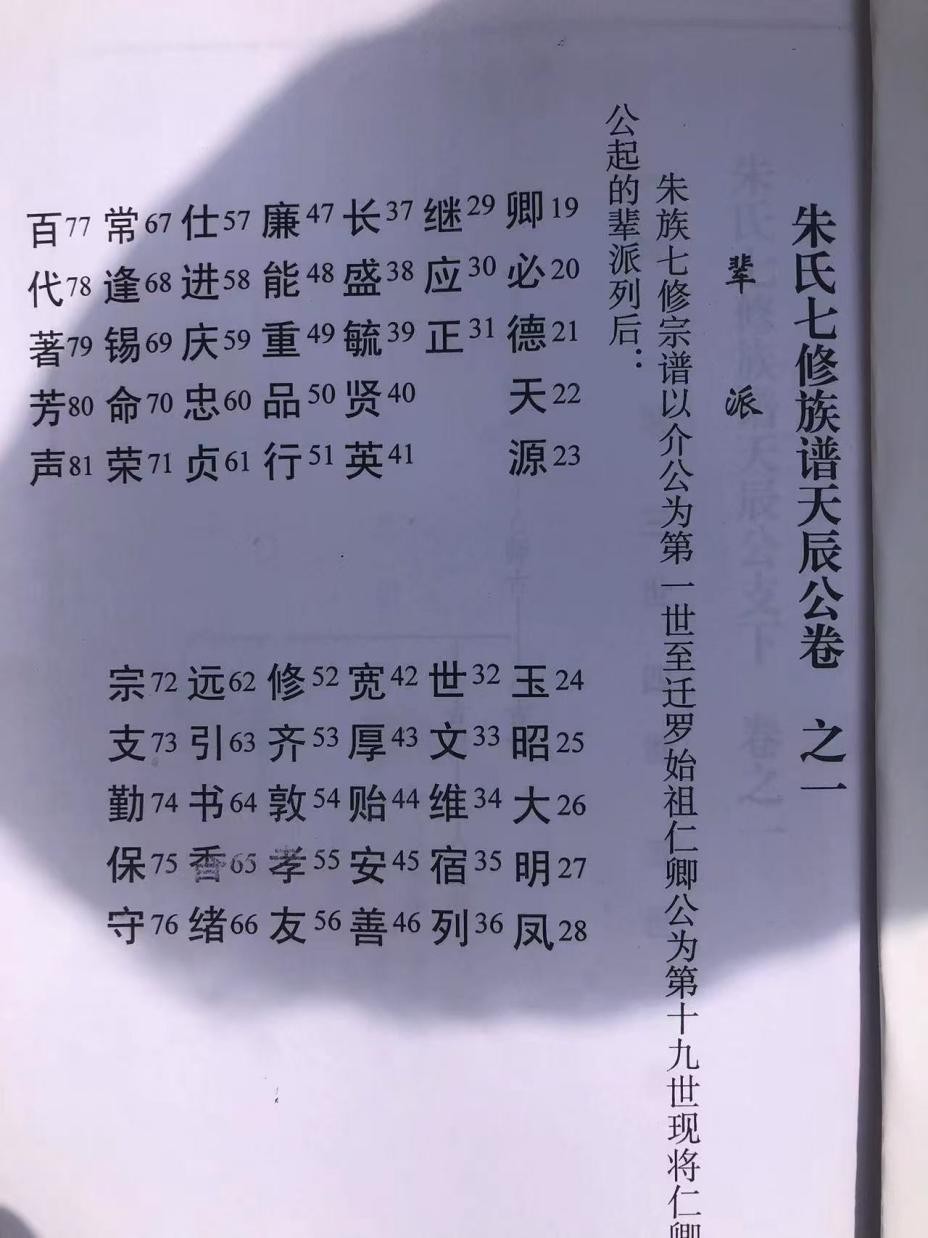 朱氏七修族谱天辰公卷 之一
辈派
朱族七修宗谱以介公为第一世至迁罗始祖仁卿公为第十九世现将仁卿
公起的辈派列后：
卿19 必20 德21 天22 源23
玉24 昭25 大26 明27 凤28
继29 应30 正31
世32 文33 维34 宿35 列36
长37 盛38 毓39 贤40 英41
宽42 厚43 贻44 安45 善46
廉47 能48 重49 品50 行51
修52 齐53 敦54 孝55 友56
仕57 进58 庆59 忠60 贞61
远62 引63 书64 香65 绪66
常67 逢68 锡69 命70 荣71
宗72 支73 勤74 保75 守76
百77 代78 著79 芳80 声81